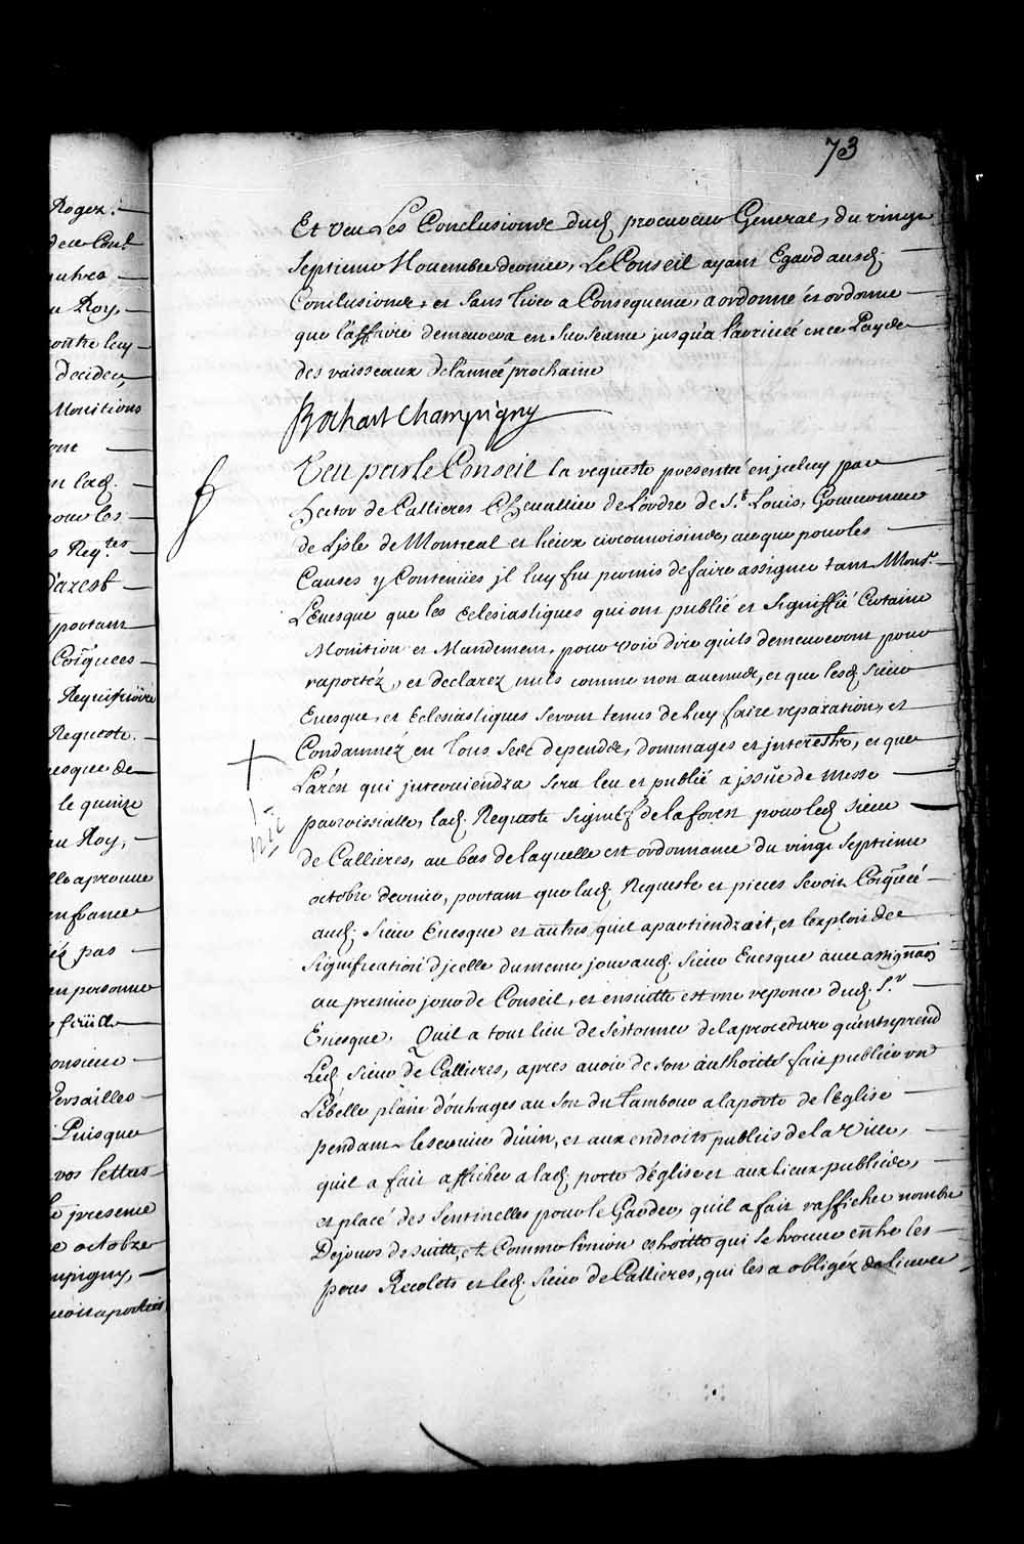 73
Rogez.
dece Conl
autres
u Roy,
contre luy
decider,
Monitions
font
en lad.
pour les
s Reqtes
D'arest
portant
Coïquees
Requisitoire
Requeste.
esque de
le quinze
du Roy,
lle aprouue
en france
ez pas
en personne
onsieur
Versailles
Puisque
vos lettres
la presence
e octobre
mpigny,
Et veu Les Conclusions dud. procureur General, du vingt
Septieme Nouembre dernier, Le Conseil ayant Egard ausd.
Conclusions, et sans tirer a Consequence, a ordonné et ordonne
que l'affaire demeurera en surseance jusqu'a l'arriuée en ce Pays
des vaisseaux de l'année prochaine
Bochart Champigny
Veu par le Conseil la requeste presentée en jceluy par
hector de Callieres Cheuallier de L'ordre de St. Louis, Gouuerneur
de L'jsle de Montreal et lieux circonuoisins, ace que pour les
Causes y Contenües jl luy fut permis de faire assigner tant Monsr.
L'Euesque que les Eclesiastiques qui ont publié et signiffié Certaine
Monition et Mandement, pour voir dire qu'ils demeureront pour
raportéz, et declarez nuls comme non auenus, et que lesd. Sieur
Euesque, et Eclesiastiques seront tenus de luy faire reparation, et
Condamnéz en tous ses depends, dommages et jnterests, et que
L'arest qui jnteruiendra sera leu et publié a jssüe de Messe
parroissialle, lad. Requeste signée de la forest pour led. Sieur
de Callieres, au bas de laquelle est ordonnance du vingt Septieme
octobre dernier, portant que lad. Requeste et pieces seroit Coïquée
aud. Sieur Euesque et autres quil apartiendroit, et l'exploit de
signification d'jcelle du meme jour aud. Sieur Euesque auec assignaõn
au premier jour de Conseil, et ensuitte est une reponce dud. Sr
Euesque. Qu'il a tout lieu de s'estonner de la procedure qu'entreprend
Led. Sieur de Callieres, apres auoir de son authorité fait publier un
Libelle plain d'outrages au son du Tambour a la porte de l'Eglise
pendant le seruice diuin, et aux endroits publics de la Ville,
qu'il a fait afficher a lad. porte d'Eglise et aux lieux publics,
et placé des sentinelles pour le Garder, qu'il a fait rafficher nombre
De jours de suitte, et Comme l'union estroitte qui se trouue entre les
peres Recolets et led. Sieur de Callieres, qui les a obligéz de liurer